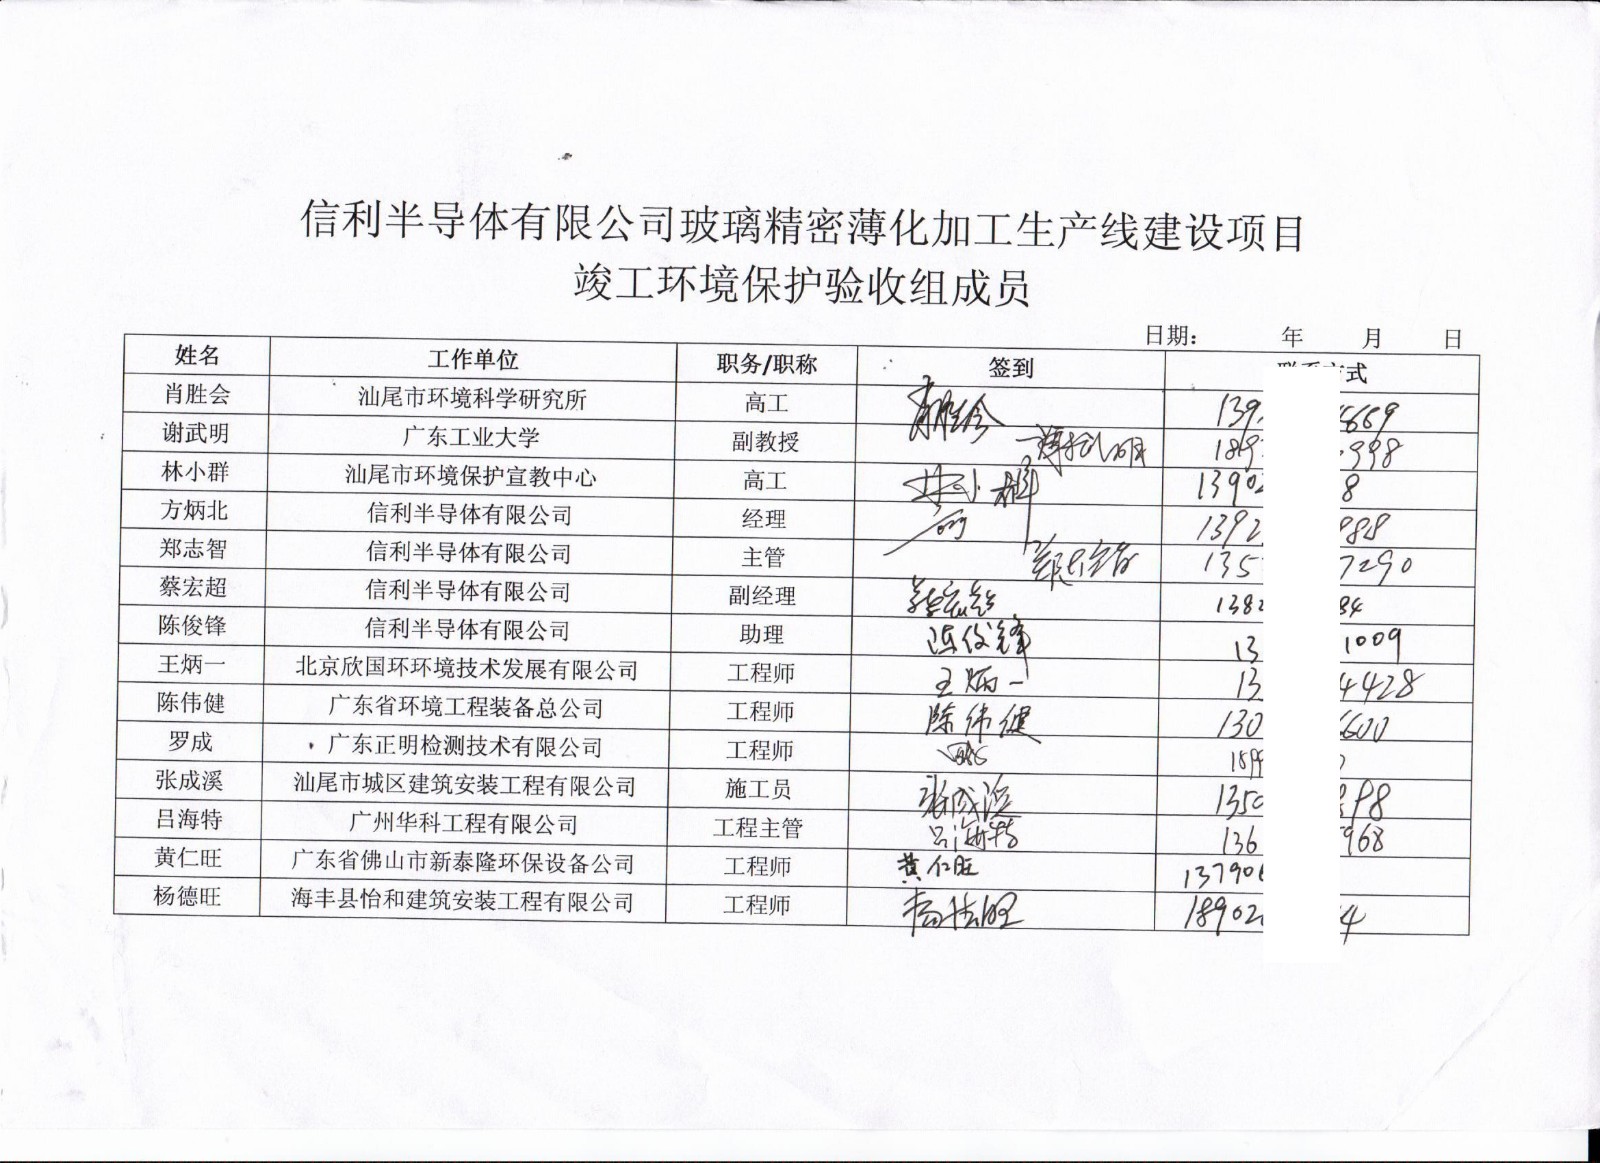 信利半导体有限公司玻璃精密薄化加工生产线建设项目
竣工环境保护验收组成员
日期: 年 月 日
姓名 工作单位 职务/职称 签到 式
肖胜会 汕尾市环境科学研究所 高工 肖胜会 139 669
谢武明 广东工业大学 副教授 谢武明 189 998
林小群 汕尾市环境保护宣教中心 高工 林小群 1390 8
方炳北 信利半导体有限公司 经理 1392 988
郑志智 信利半导体有限公司 主管 郑志智 135 7290
蔡宏超 信利半导体有限公司 副经理 蔡宏超 138 84
陈俊锋 信利半导体有限公司 助理 陈俊锋 13 1009
王炳一 北京欣国环环境技术发展有限公司 工程师 王炳一 13 4428
陈伟健 广东省环境工程装备总公司 工程师 陈伟健 130 600
罗成 广东正明检测技术有限公司 工程师 189
张成溪 汕尾市城区建筑安装工程有限公司 施工员 张成溪 135 98
吕海特 广州华科工程有限公司 工程主管 吕海特 136 968
黄仁旺 广东省佛山市新泰隆环保设备公司 工程师 黄仁旺 13790
杨德旺 海丰县怡和建筑安装工程有限公司 工程师 杨德旺 18902 4